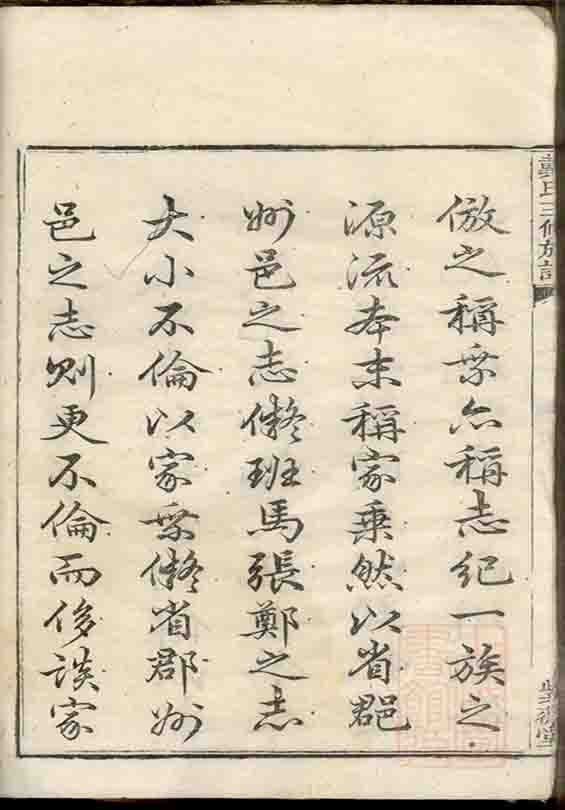 倣之稱乗亦稱志紀一族之
源流本末稱家乗然以省郡
州邑之志儗班馬張鄭之志
大小不倫以家乗儗省郡州
邑之志則更不倫而侈談家
氏三修族
堂